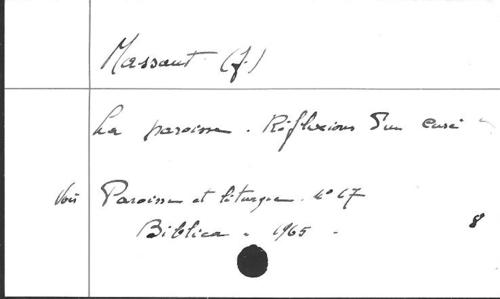 Massaut (J.)
La paroisse. Réflexions d'un curé
Voir Paroisse et liturgie. n° 67
Biblica - 1965 -
8